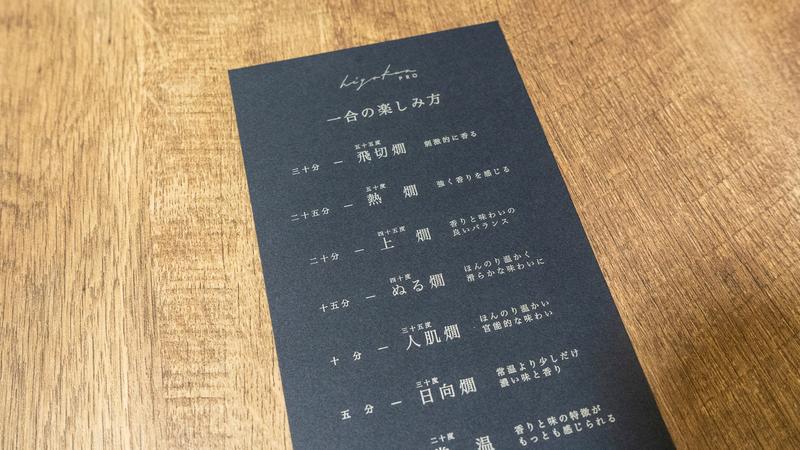 hizokan
PRO
一合の楽しみ方
三十分 — 飛切燗 五十五度 刺激的に香る
二十五分 — 熱燗 五十度 強く香りを感じる
二十分 — 上燗 四十五度 香りと味わいの
良いバランス
十五分 — ぬる燗 四十度 ほんのり温かく
滑らかな味わいに
十分 — 人肌燗 三十五度 ほんのり温かい
官能的な味わい
五分 — 日向燗 三十度 常温より少しだけ
濃い味と香り
二十度 温 香りと味の特徴が
もっとも感じられる